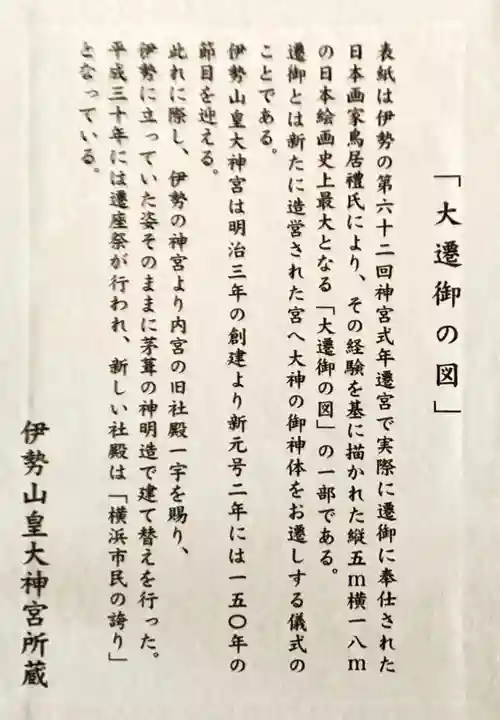 「大遷御の図」
表紙は伊勢の第六十二回神宮式年遷宮で実際に遷御に奉仕された
日本画家鳥居禮氏により、その経験を基に描かれた縦五ｍ横一八ｍ
の日本絵画史上最大となる「大遷御の図」の一部である。
遷御とは新たに造営された宮へ大神の御神体をお遷しする儀式の
ことである。
伊勢山皇大神宮は明治三年の創建より新元号二年には一五〇年の
節目を迎える。
此れに際し、伊勢の神宮より内宮の旧社殿一宇を賜り、
伊勢に立っていた姿そのままに茅葺の神明造で建て替えを行った。
平成三十年には遷座祭が行われ、新しい社殿は「横浜市民の誇り」
となっている。
伊勢山皇大神宮所蔵